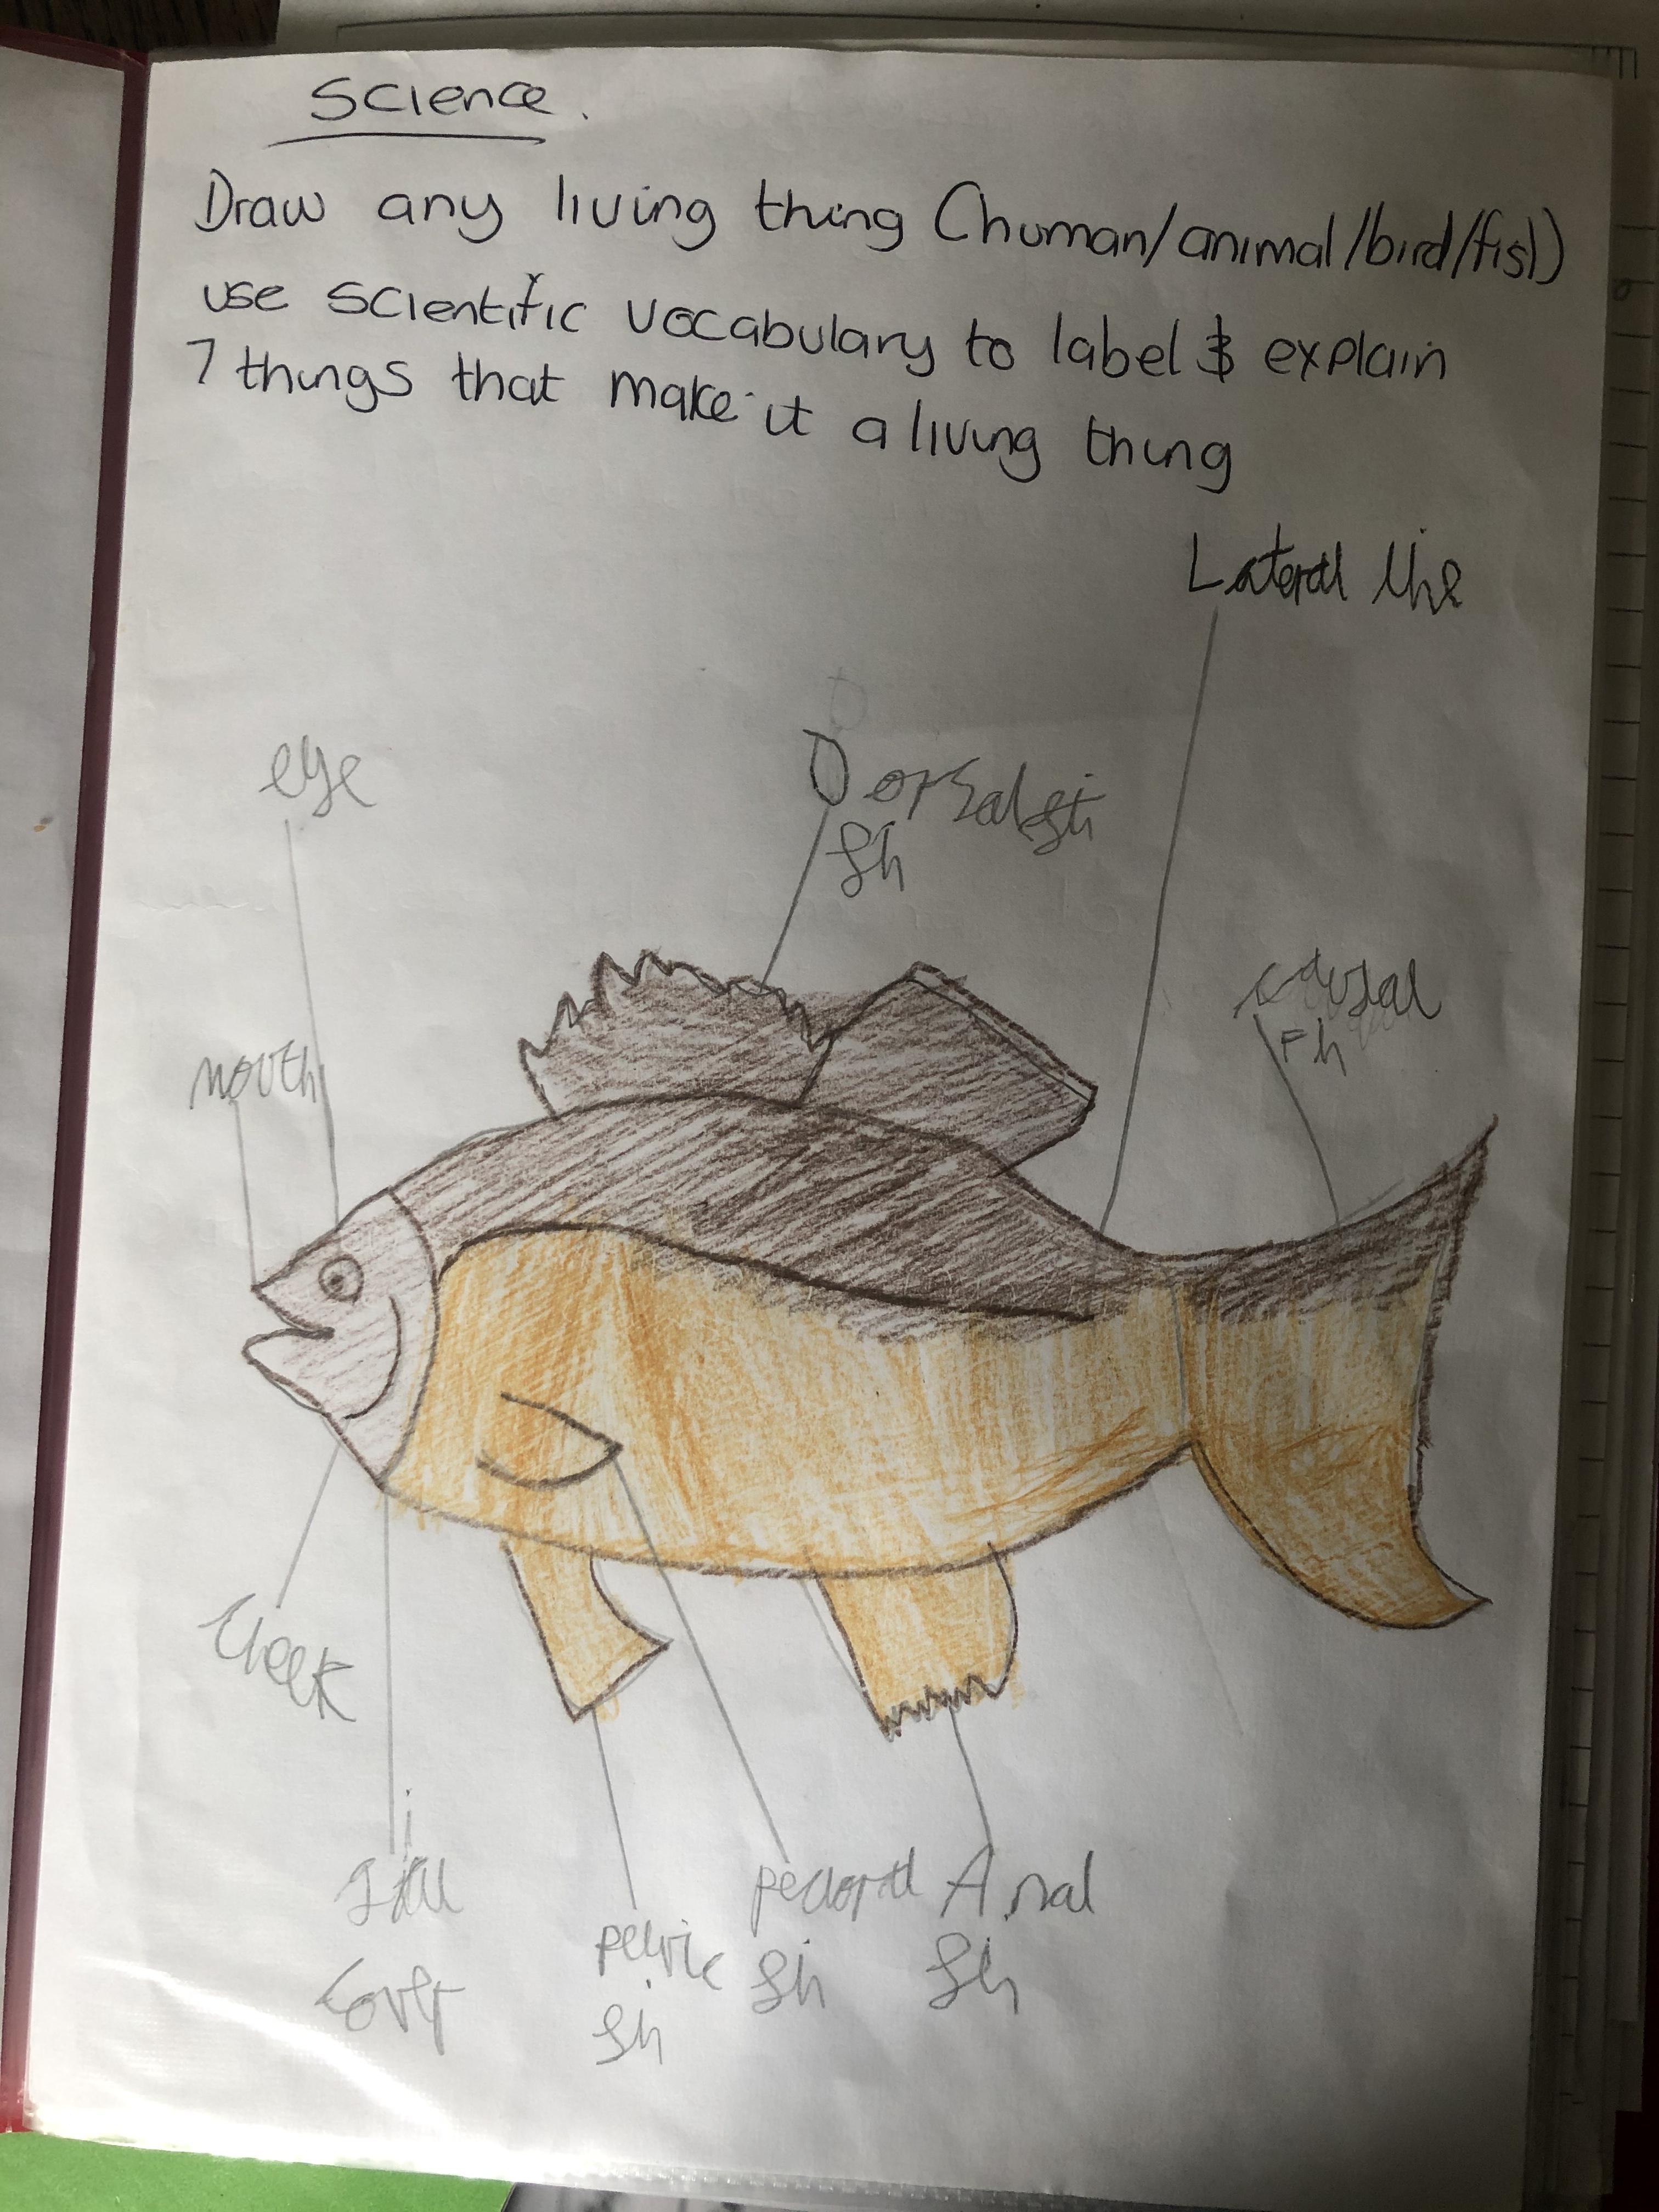 Science.
Draw any living thing (human/animal/bird/fish)
use scientific vocabulary to label & explain
7 things that make it a living thing
Lateral line
eye
Dorsal
caudal
Fin
mouth
cheek
gill
cover
pelvic
fin
pectoral
fin
Anal
fin